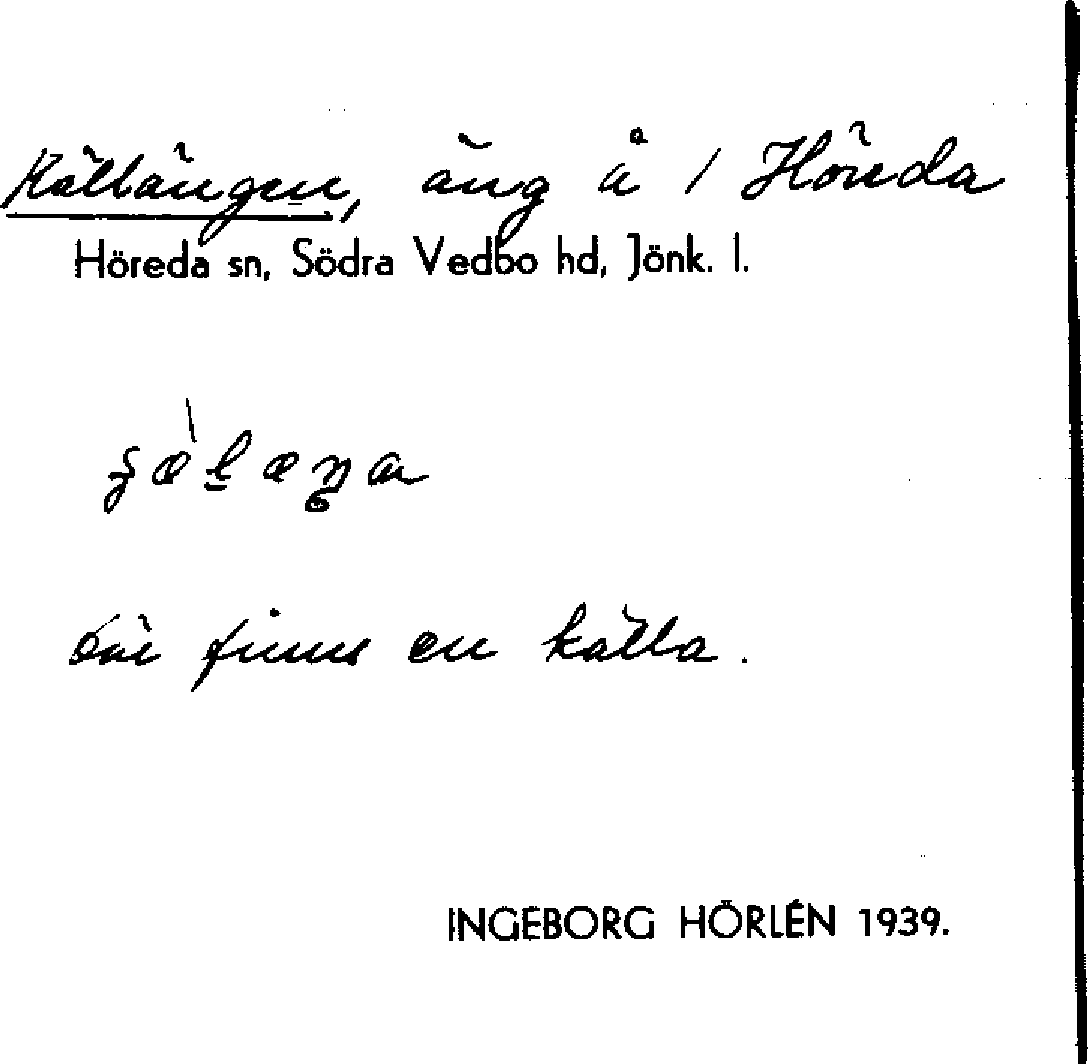 Källängen, äng å / Höreda
Höreda sn, Södra Vedbo hd, Jönk. l.
Där finns en källa.
INGEBORG HÖRLÉN 1939.